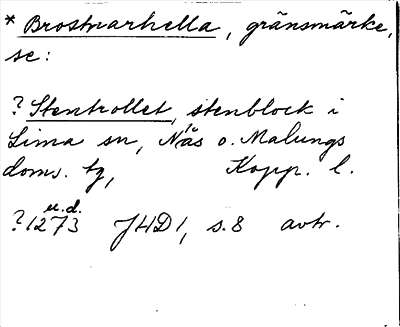 * Brostnarhella, gränsmärke,
se:
? Stentrollet, stenblock i
Lima sn, Nås o. Malungs
doms. tg, Kopp. l.
u.d.
? 1273 JHD 1, s. 8 avtr.